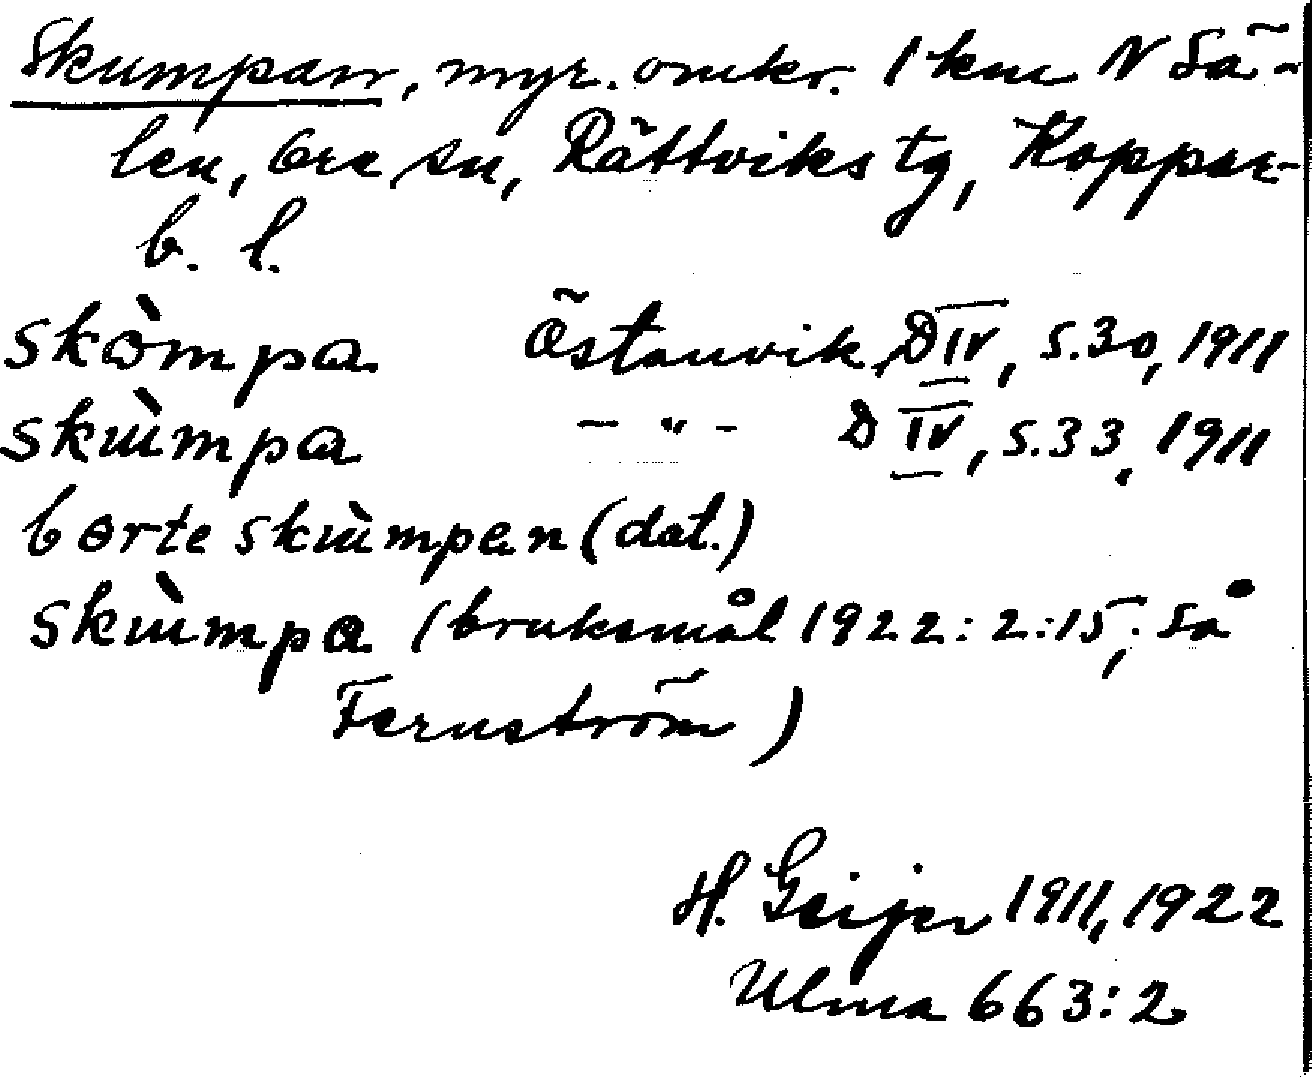 Skumpan, myr. omkr. 1 km N Sä-
len, Ore sn, Rättviks tg, Koppar-
b. l.
skòmpa Östanvik, D IV, s. 30, 1911
skùmpa - " - D IV, s. 33, 1911
borte skùmpan (dat.)
skùmpa (bruksmål 1922: 2:15; så
Fernström)
H. Geijer 1911, 1922
Ulma 663:2